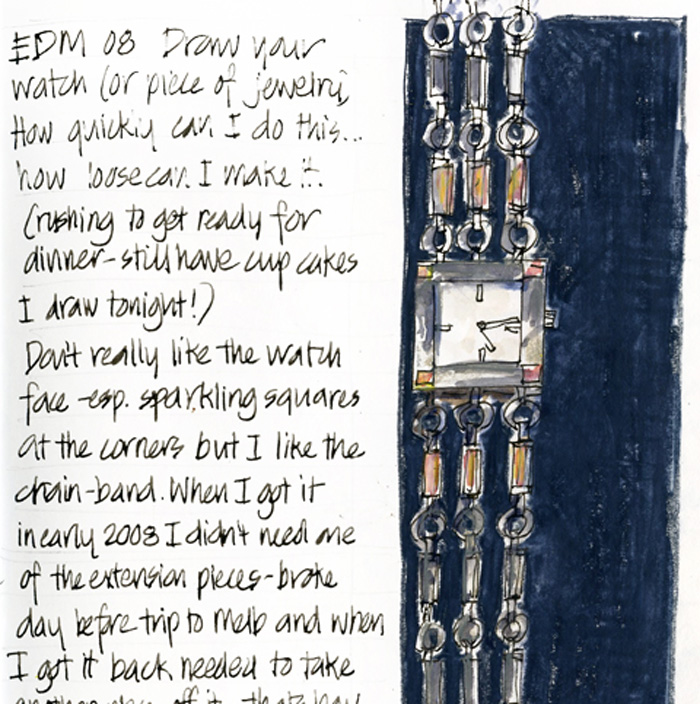 EDM 08 Draw your
watch (or piece of jewelry)
How quickly can I do this...
how loose can I make it.
(rushing to get ready for
dinner-still have cup cakes
I draw tonight!)
Don't really like the watch
face -esp. sparkling squares
at the corners but I like the
chain-band. When I got it
in early 2008 I didn't need one
of the extension pieces-broke
day before trip to Melb and when
I got it back needed to take
another off it